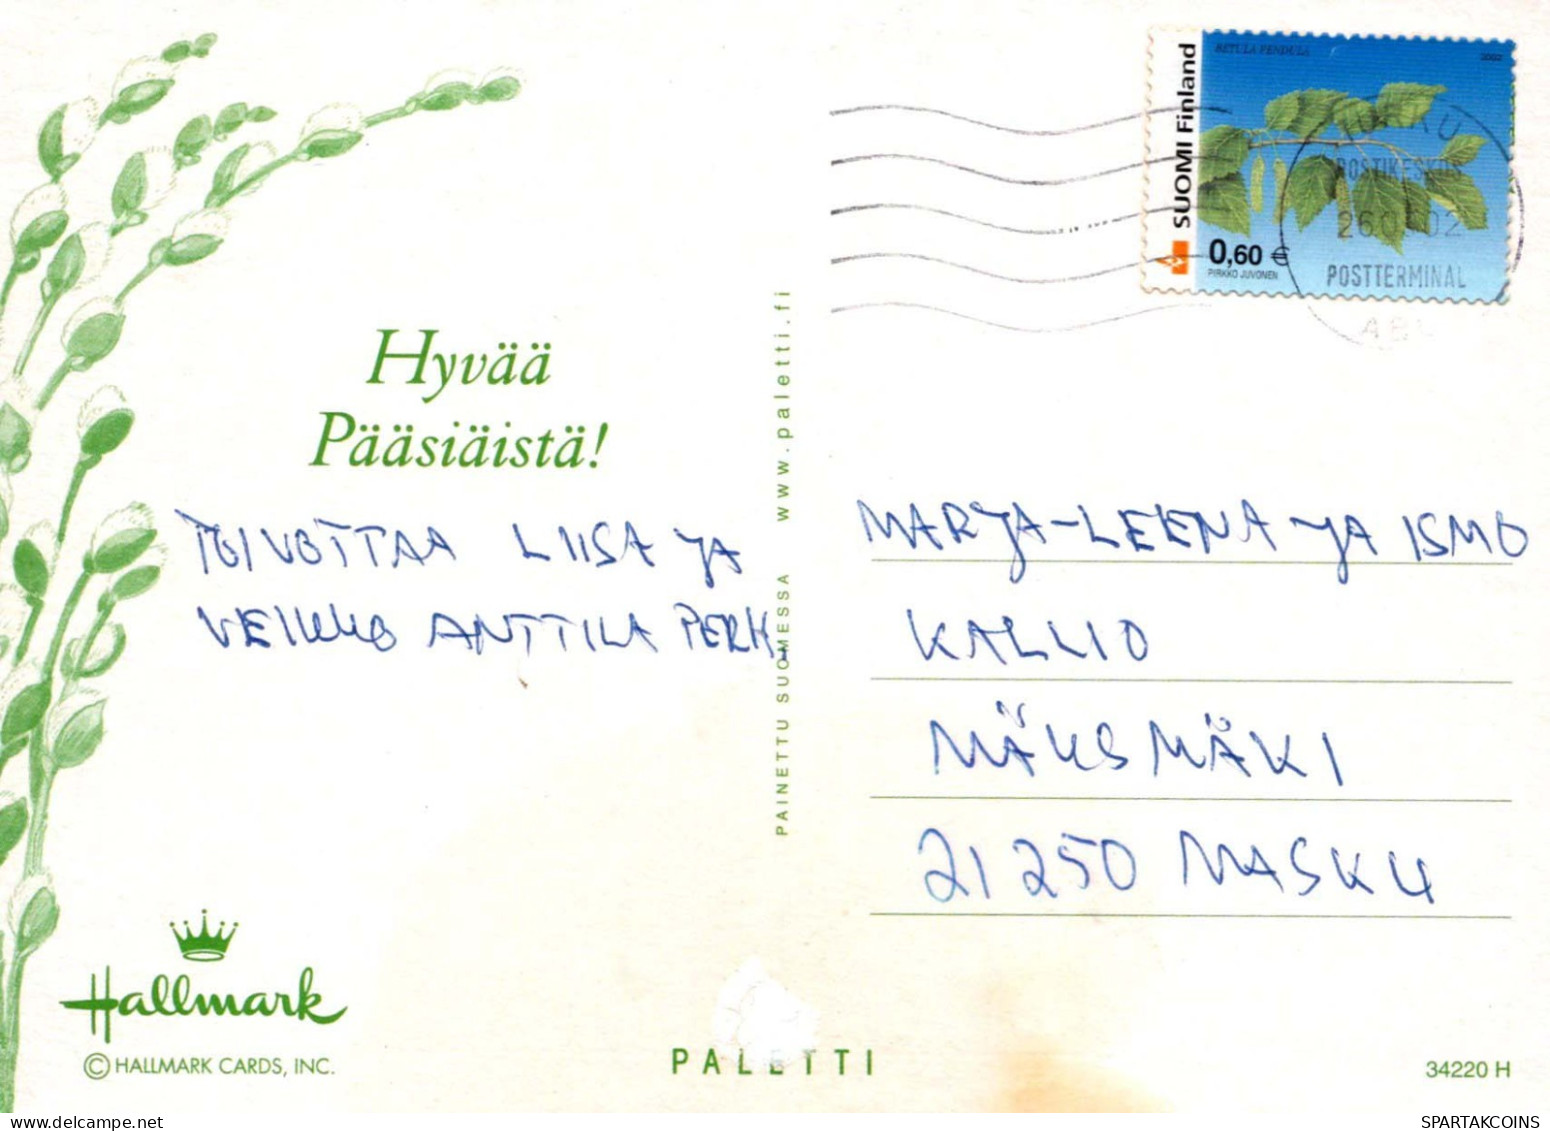 BETULA PENDULA 2002
SUOMI Finland
0,60 €
PIRKKO JUVONEN
TURKU
POSTIKESKUS
POSTTERMINAL
Hyvää
Pääsiäistä!
TOIVOTTAA LIISA JA
VEIKKO ANTTILA PERH.
www.paletti.fi
PAINETTU SUOMESSA
MARJA-LEENA JA ISMO
KALLIO
MÄKSMÄKI
21250 MASKU
Hallmark
© HALLMARK CARDS, INC.
PALETTI
34220 H
SPARTAKCOINS